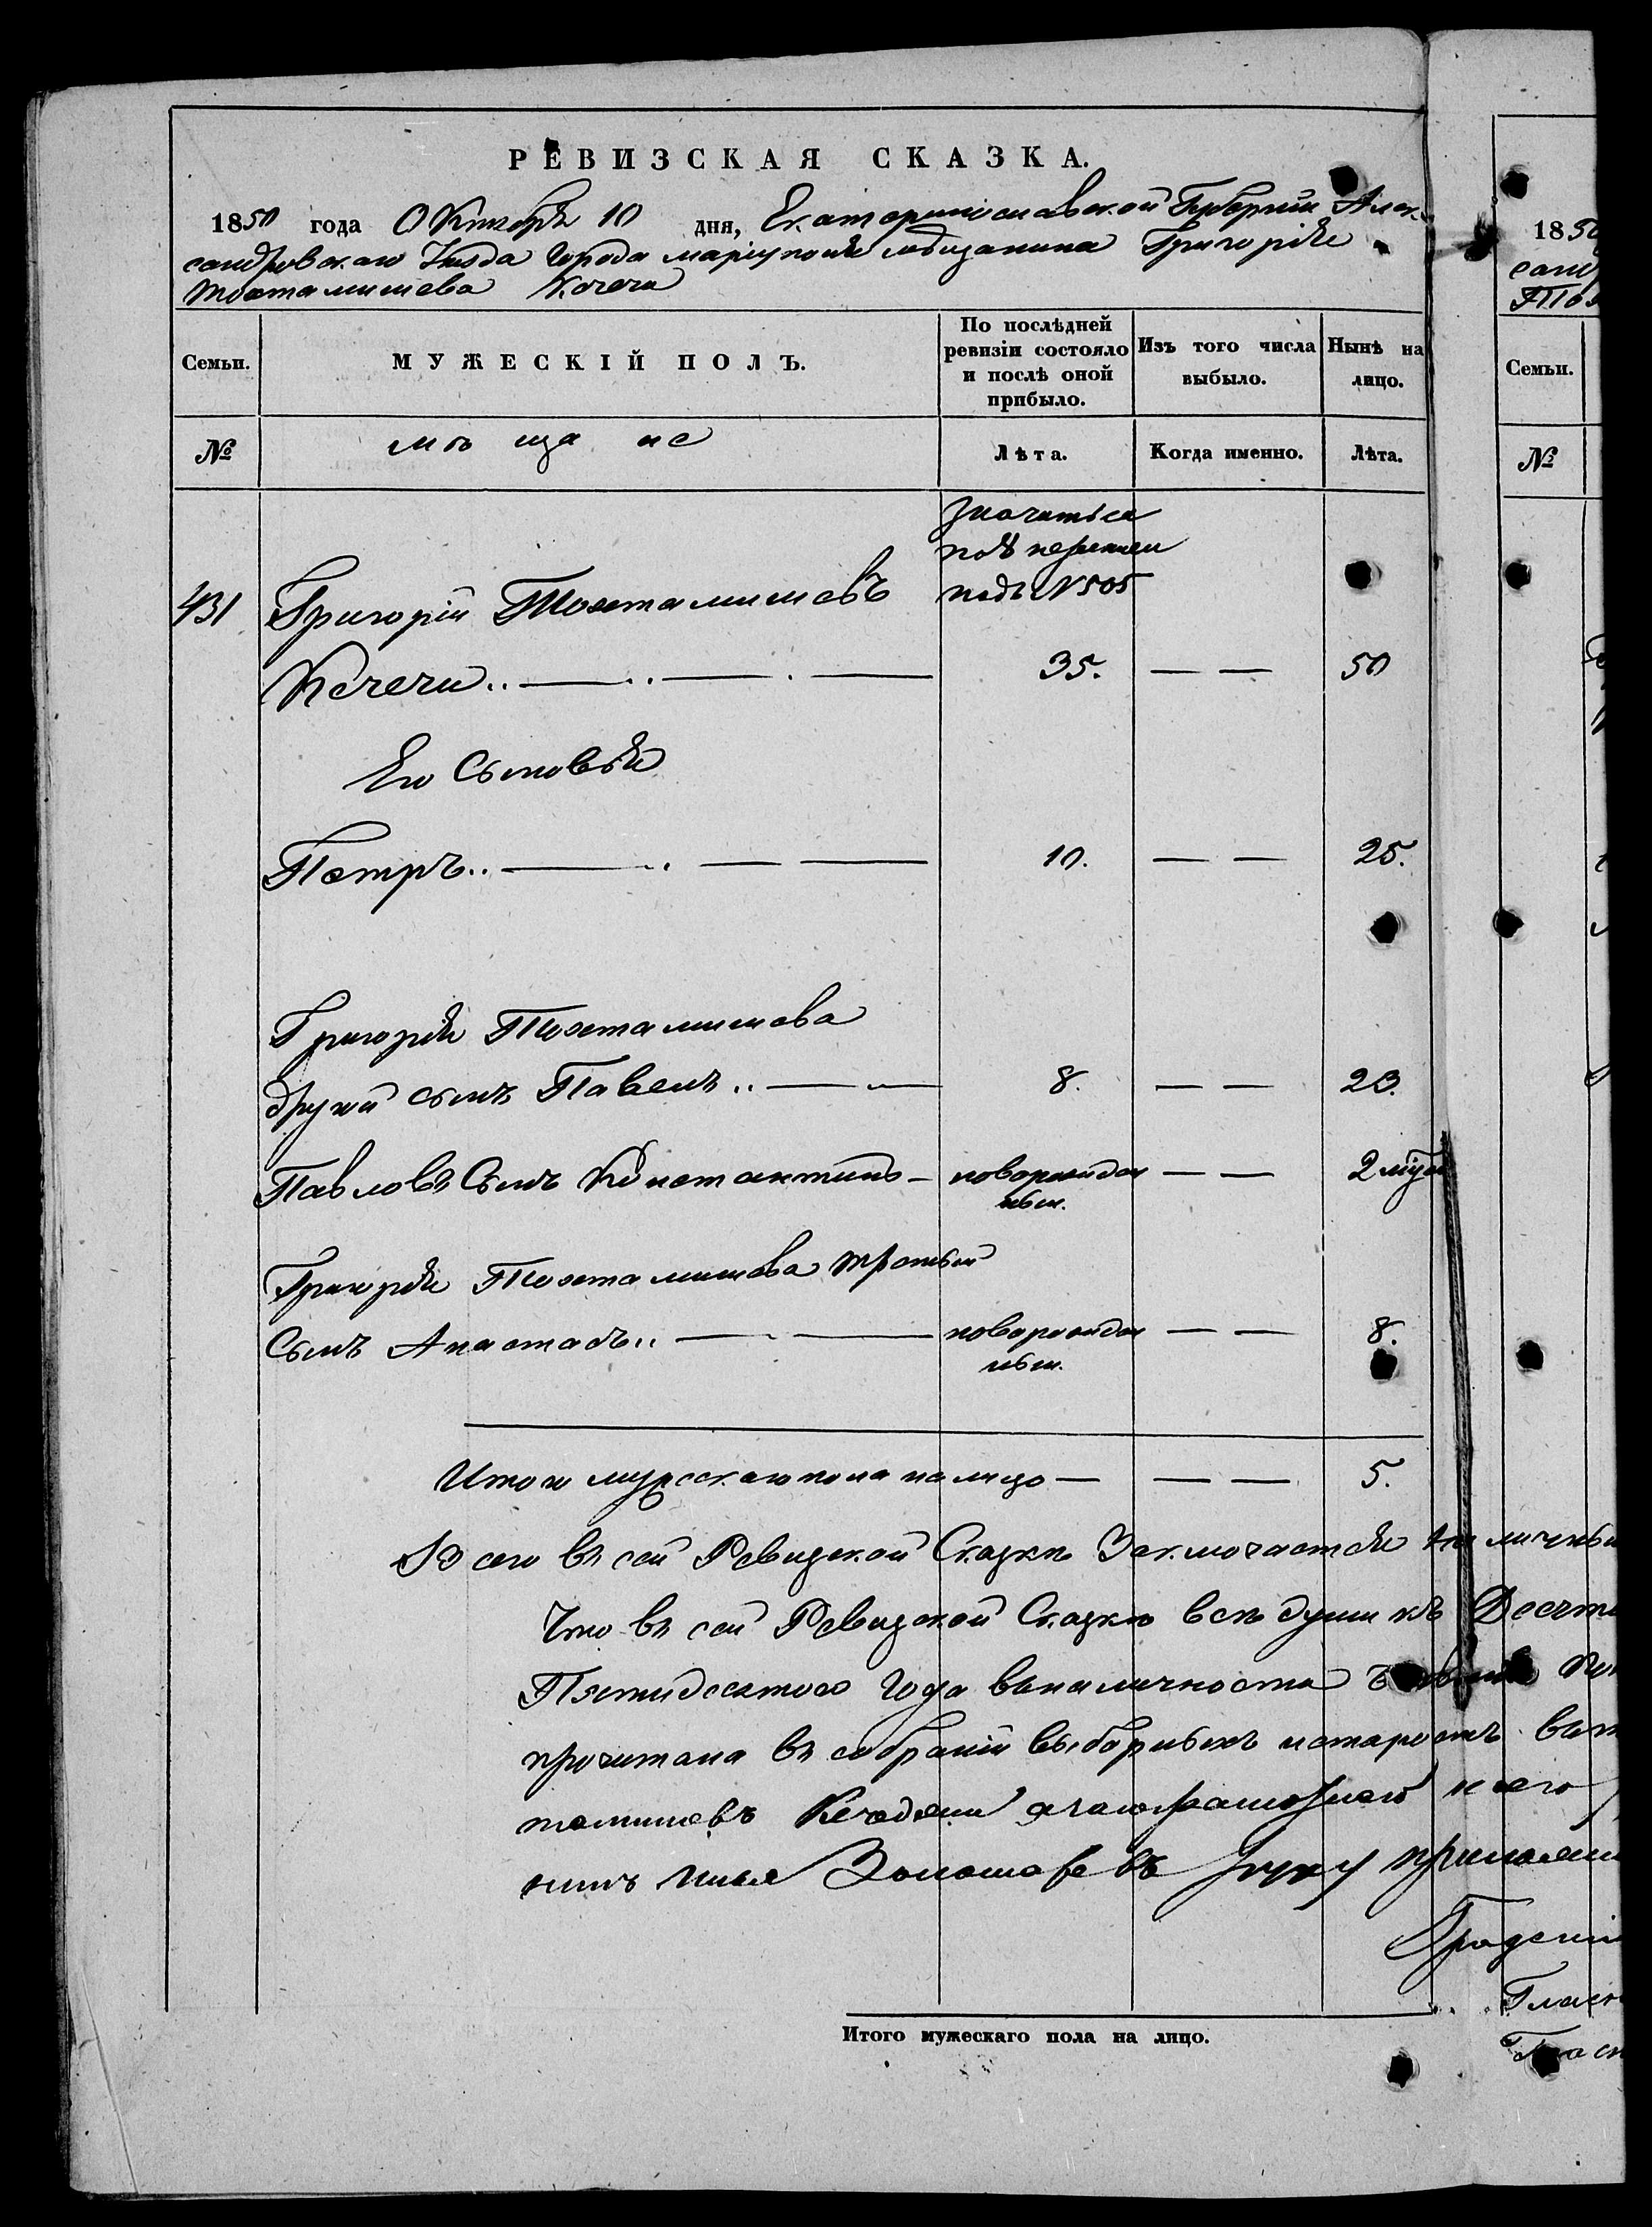 РЕВИЗСКАЯ СКАЗКА.
1850 года Октября 10 дня, Екатеринославской Губернии Алек-
сандровскаго Уезда Города мариуполя мѣщанина Григорія
Тохтамишева Кечеги
Семьи. МУЖЕСКІЙ ПОЛЪ. По послѣдней ревизіи состояло и послѣ оной прибыло. Изъ того числа выбыло. Нынѣ на лицо.
№ мѣщане Лѣта. Когда именно. Лѣта.
Значится
по 8 ревизии
431 Григорій Тохтамишевъ подъ № 505
Кечеги 35. — — 50
Его Сыновья
Петръ 10. — — 25.
Григорія Тохтамишева
другой сынъ Павелъ 8. — — 23.
Павловъ Сынъ Константинъ — новорожден — — 2
ный.
Григорія Тохтамишева третый
Сынъ Анастасъ новорожден — — 8.
ный.
Итого мужескаго пола на лицо — — — 5.
Всего въ сей Ревизской Сказкѣ Заключается на личны
Что въ сей Ревизской Сказкѣ всѣ души къ Десят
Пятидесятого Года вь наличности
прочитана въ собраніи выборныхъ и старостъ
тамишевъ его
нинъ Илья руку приложи
Градскій
Гласн
Глас
Итого мужескаго пола на лицо.
1850
санд
Тох
Семьи.
№